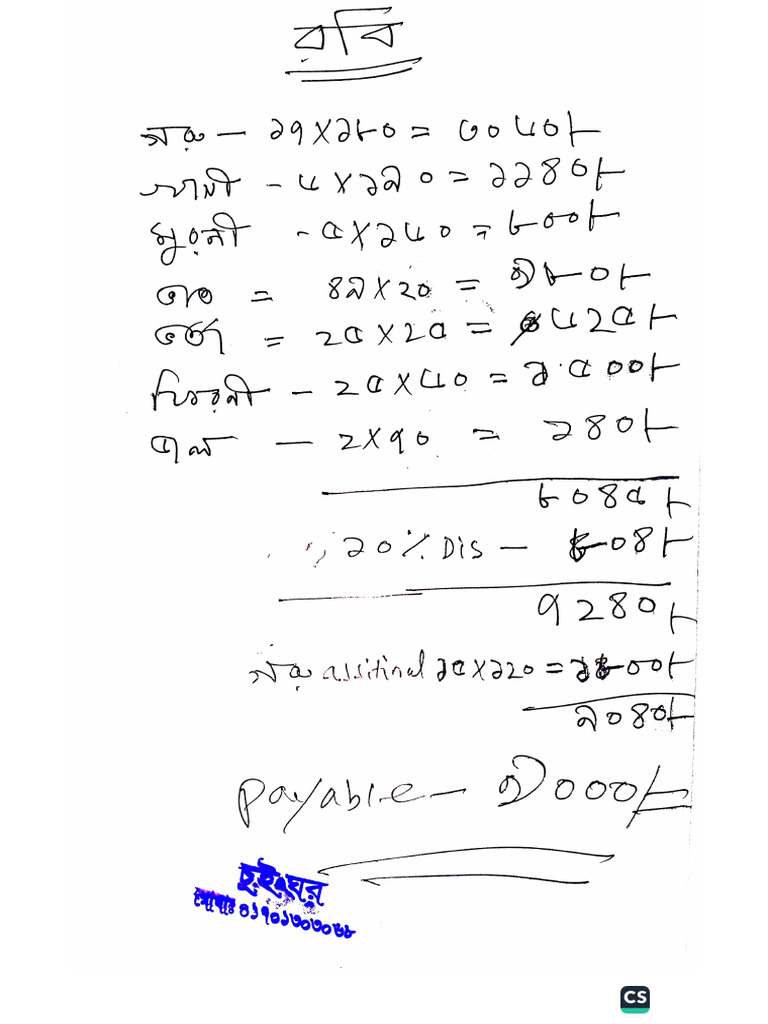 রবি
গরু - ১৭X১৮০ = ৩০৬০/-
খাসী - ৬X১৯০ = ১১৪০/-
মুরগী - ৫X১৬০ = ৮০০/-
ভাত = ৪৯X২০ = ৯৮০/-
= ২৫X২৫ = ৬২৫/-
ফিরনী - ২৫X৬০ = ১৫০০/-
- ২X৭০ = ১৪০/-
৮০৪৫/-
১০% Dis - ৮০৪/-
৭২৪০/-
গরু assitinal ১৫X১২০ = ১৮০০/-
৯০৪০/-
payable - ৯০০০/=
চুইঘর
মোবাঃ
CS